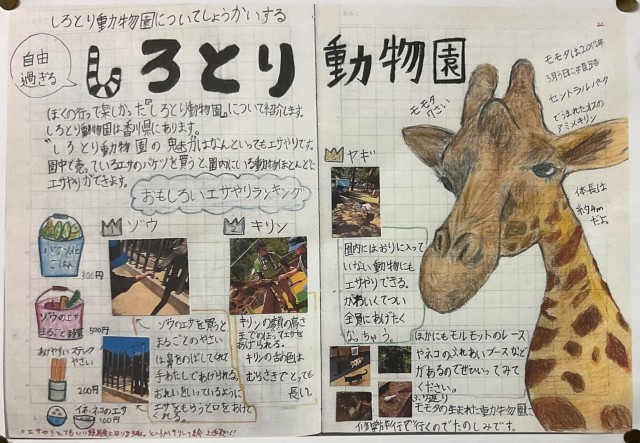 しろとり動物園についてしょうかいする
自由
過ぎる
しろとり 動物園
ぼくの行って楽しかった『しろとり動物園』について紹介します。
しろとり動物園は香川県にあります。
しろとり動物園の魅力はなんといってもエサやりです。
園中で売っているエサのバケツを買うと園内にいる動物ほとんどに
エサやりができます。
おもしろいエサやりランキング
1 ゾウ
バケツ
ごはん
ゾウのエサ
まるごと野菜
500円
おやすい スティック
やさい
200円
イネ・ネコのエサ
100円
ゾウのエサを買うと
まるごとのやさい
は鼻をのばしてくれて
手わたしであげられる。
おねいをいっているように
エサをもらうと口をあけて
くれる。
2 キリン
キリンの顔の高さ
までのぼってエサを
あげられる。
キリンの舌の色は
むらさきでとっても
長い。
3 ヤギ
園内にはおりに入って
いない動物にも
エサやりできる。
かわいくてつい
全員にあげたく
なっちゃう。
モモタ
7さい
モモタは2012年
3月3日に
セントラルパーク
でうまれたオスの
アミメキリン
体長は
約4m
だよ
ほかにもモルモットのレース
やネコのふれあいブースなど
があるのでぜひいってみて
ください。
モモタの生まれた動物園に
行くのでたのしみです。